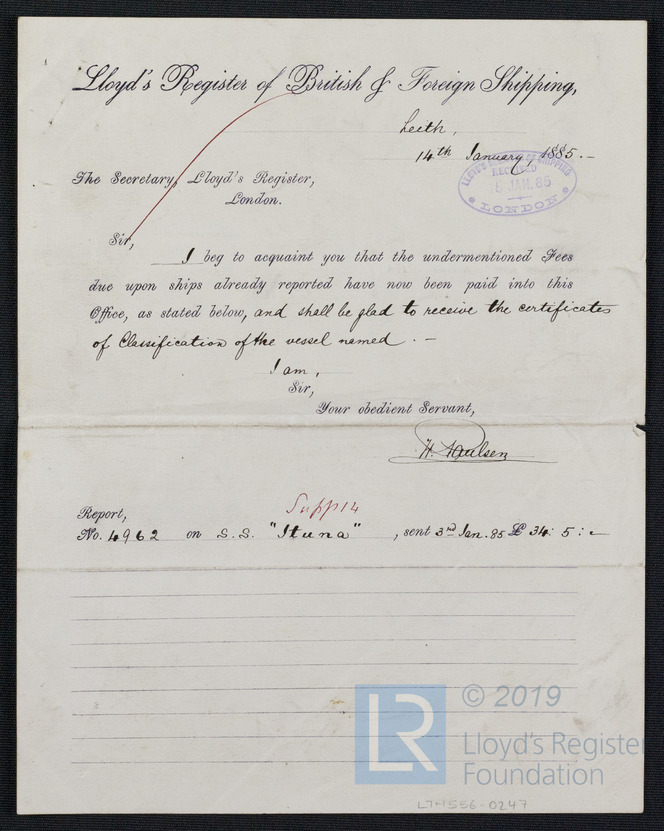 Lloyd's Register of British & Foreign Shipping,
Leith,
14th January, 1885.-
RECEIVED
15 JAN. 85
LONDON
The Secretary, Lloyd's Register,
London.
Sir,
I beg to acquaint you that the undermentioned Fees
due upon ships already reported have now been paid into this
Office, as stated below, and shall be glad to receive the certificates
of Classification of the vessel named. -
I am,
Sir,
Your obedient Servant,
H. Paulsen
Supp 14
Report,
No. 4962 on S.S. "Ituna", sent 3rd Jan. 85 £ 34: 5: -
LR
© 2019
Lloyd's Register
Foundation